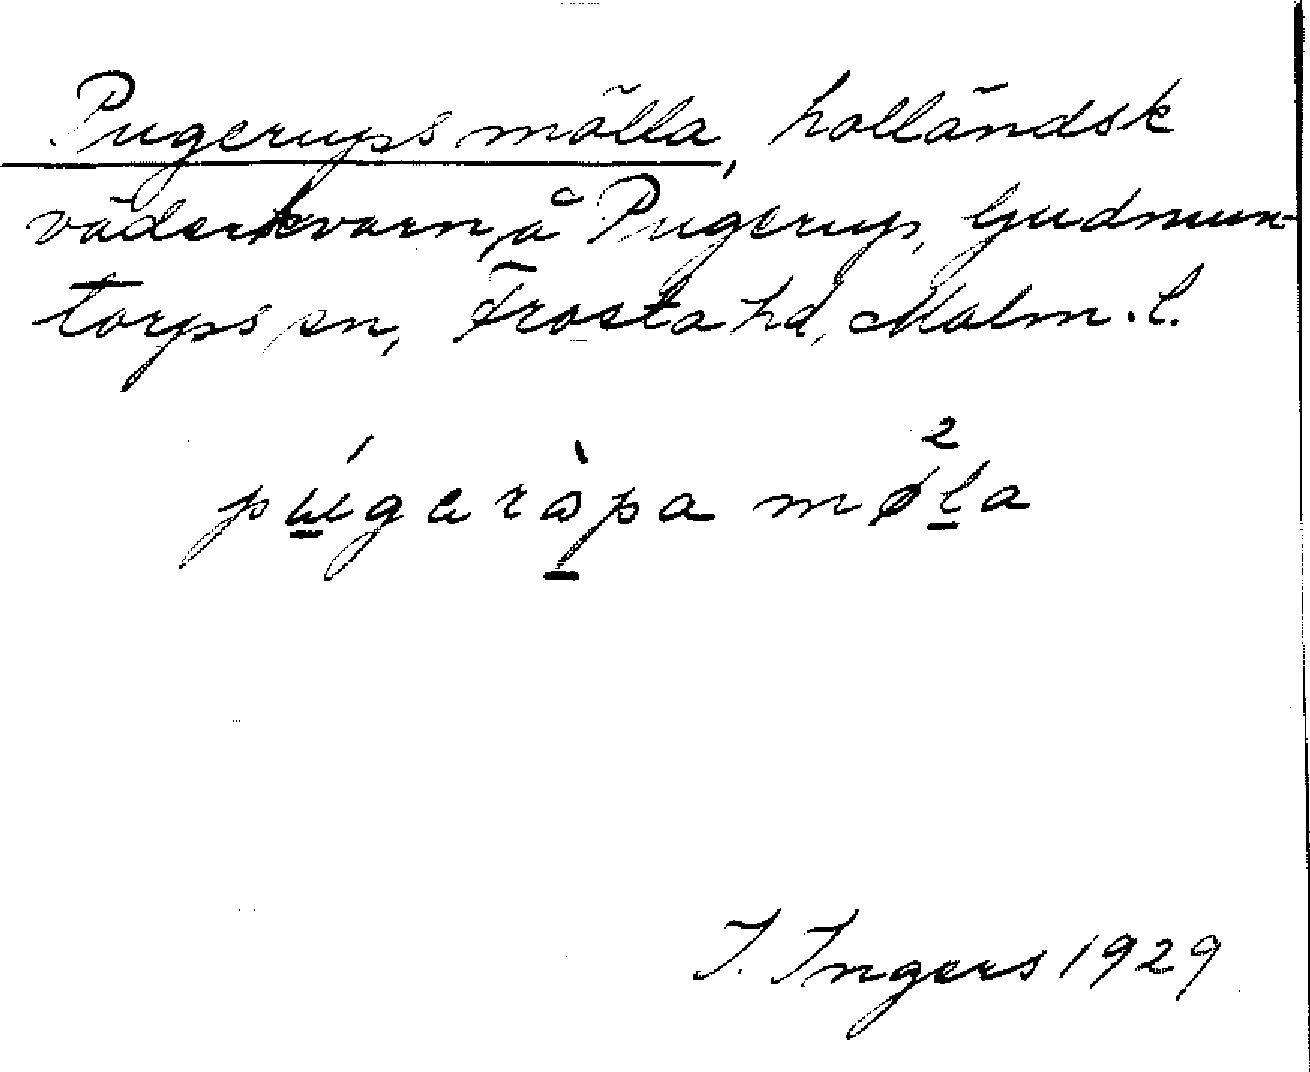 Pugerups mölla, holländsk
väderkvarn å Pugerup, Gudmun-
torps sn, Frosta hd, Malm. l.
púgaròpa møla
2
I. Ingers 1929